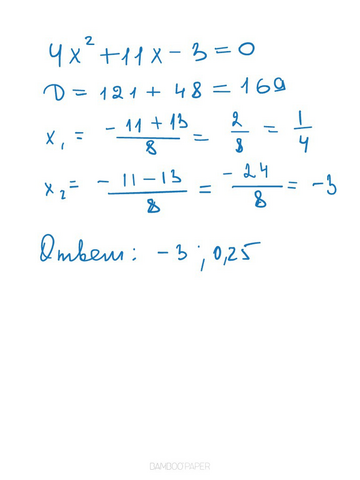 4x² + 11x − 3 = 0
D = 121 + 48 = 169
x₁ = (−11 + 13)/8 = 2/8 = 1/4
x₂ = (−11 − 13)/8 = −24/8 = −3
Ответ: −3 ; 0,25
BAMBOO PAPER